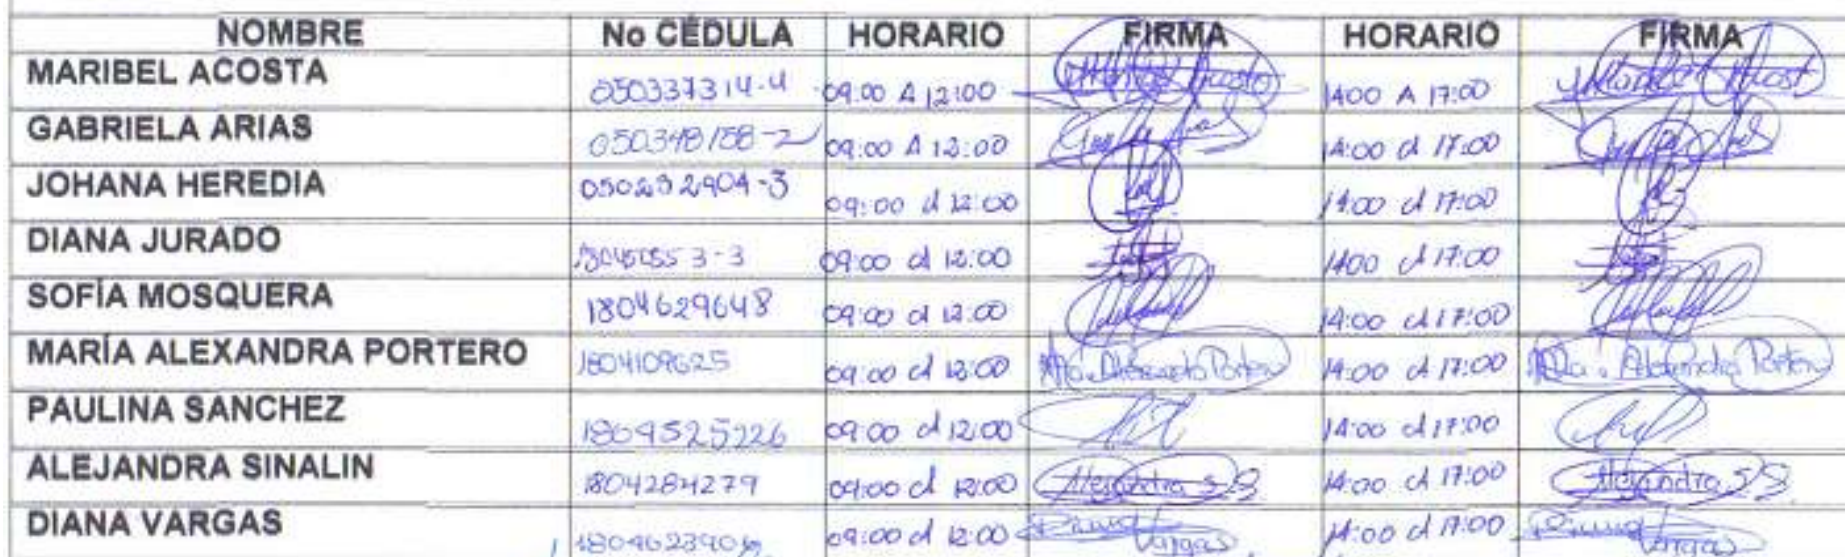 NOMBRE No CÉDULA HORARIO FIRMA HORARIO FIRMA
MARIBEL ACOSTA 050337314-4 09:00 A 12:00 Maribel Acosta 1400 A 17:00 Maribel Acost
GABRIELA ARIAS 050348158-2 09:00 A 12:00 14:00 a 17:00
JOHANA HEREDIA 050292904-3 09:00 a 12:00 14:00 a 17:00
DIANA JURADO 09:00 a 12:00 1400 a 17:00
SOFÍA MOSQUERA 1804629648 09:00 a 12:00 14:00 a 17:00
MARÍA ALEXANDRA PORTERO 1804109625 09:00 a 12:00 Ma. Alexandra Portero 14:00 a 17:00 Ma. Alexandra Portero
PAULINA SANCHEZ 09:00 a 12:00 14:00 a 17:00
ALEJANDRA SINALIN 1804284279 09:00 a 12:00 Alejandra S.S. 14:00 a 17:00 Alejandra S.S.
DIANA VARGAS 09:00 a 12:00 Diana Vargas 14:00 a 17:00 Diana Vargas